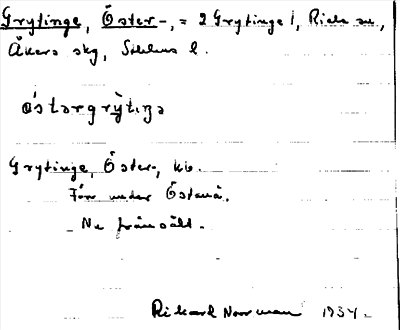 Grytinge, Öster-, = 2 Grytinge 1, Riala sn,
Åkers skg, Sthlms l.
østərgrỳtiŋə
Grytinge, Öster-, kb.
Förr under Östanå.
Nu frånsåld.
Rikard Norrman 1934.